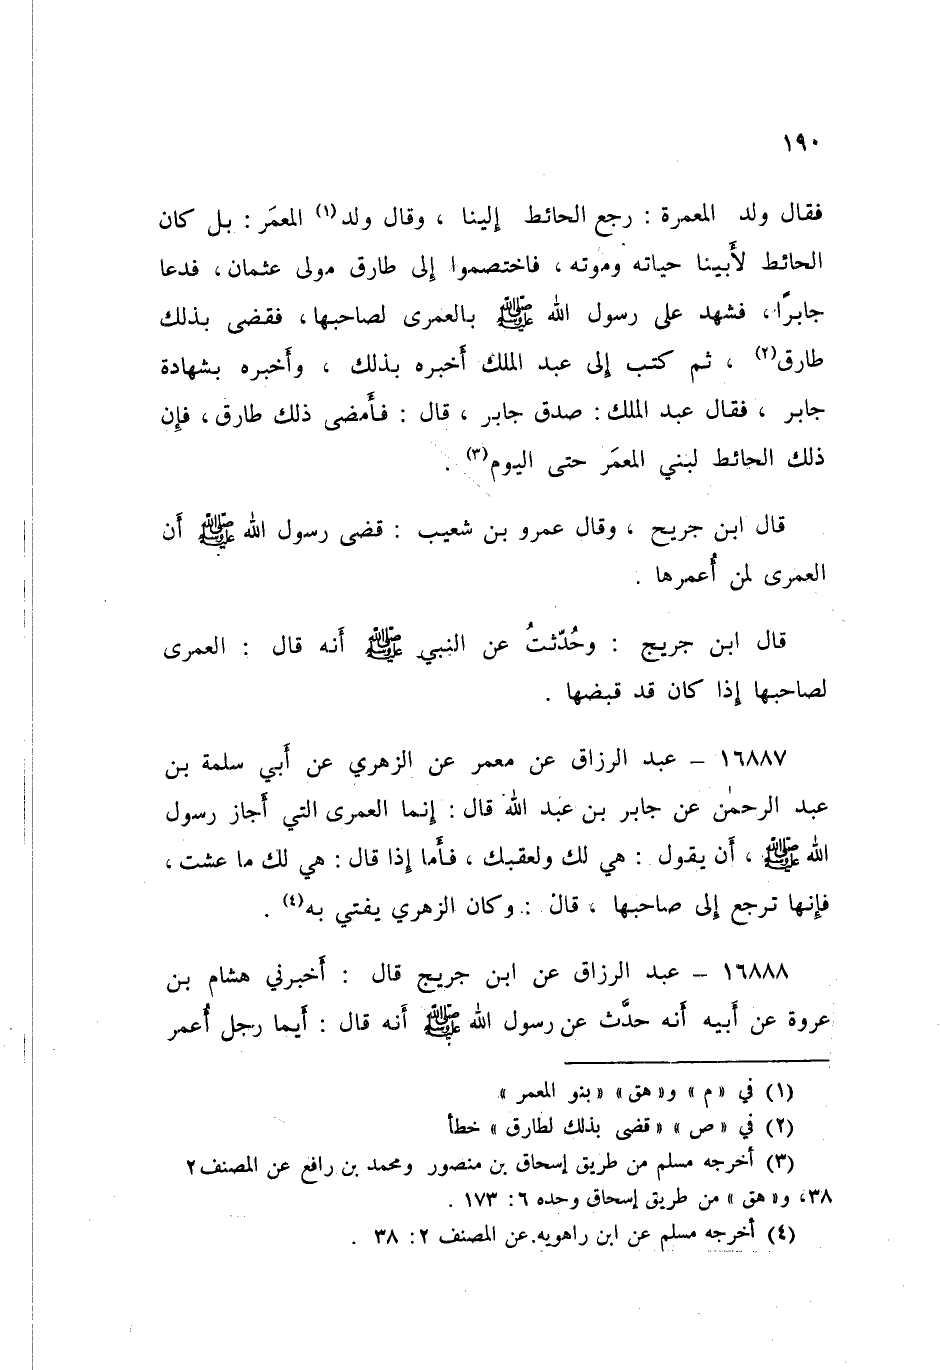 ١٩٠
فقال ولد المعمرة : رجع الحائط إلينا ، وقال ولد(١) المعمَر : بل كان
الحائط لأبينا حياته وموته ، فاختصموا إلى طارق مولى عثمان ، فدعا
جابرًا ، فشهد على رسول الله ﷺ بالعمرى لصاحبها ، فقضى بذلك
طارق(٢) ، ثم كتب إلى عبد الملك أخبره بذلك ، وأخبره بشهادة
جابر ، فقال عبد الملك : صدق جابر ، قال : فأمضى ذلك طارق ، فإن
ذلك الحائط لبني المعمَر حتى اليوم(٣) .
قال ابن جريح ، وقال عمرو بن شعيب : قضى رسول الله ﷺ أن
العمرى لمن أُعمرها .
قال ابن جريج : وحُدّثتُ عن النبي ﷺ أنه قال : العمرى
لصاحبها إذا كان قد قبضها .
١٦٨٨٧ – عبد الرزاق عن معمر عن الزهري عن أبي سلمة بن
عبد الرحمٰن عن جابر بن عبد الله قال : إنما العمرى التي أجاز رسول
الله ﷺ ، أن يقول : هي لك ولعقبك ، فأما إذا قال : هي لك ما عشت ،
فإنها ترجع إلى صاحبها ، قال : وكان الزهري يفتي به(٤) .
١٦٨٨٨ – عبد الرزاق عن ابن جريج قال : أخبرني هشام بن
عروة عن أبيه أنه حدَّث عن رسول الله ﷺ أنه قال : أيما رجل أُعمر
(١) في « م » و« هق » « بنو المعمر » .
(٢) في « ص » « قضى بذلك لطارق » خطأ
(٣) أخرجه مسلم من طريق إسحاق بن منصور ومحمد بن رافع عن المصنف ٢
٣٨، و« هق » من طريق إسحاق وحده ٦ : ١٧٣ .
(٤) أخرجه مسلم عن ابن راهويه عن المصنف ٢ : ٣٨ .